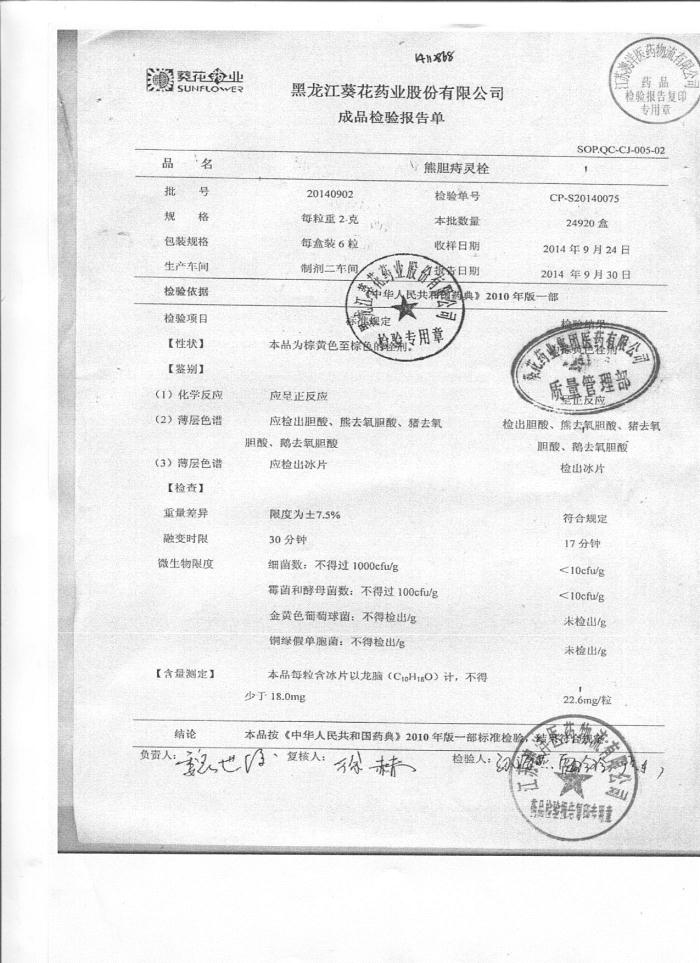 1411868
葵花药业
SUNFLOWER
黑龙江葵花药业股份有限公司
成品检验报告单
江苏澳洋医药物流有限公司
药品
检验报告复印
专用章
SOP.QC-CJ-005-02
品 名 熊胆痔灵栓
批 号 20140902 检验单号 CP-S20140075
规 格 每粒重2克 本批数量 24920 盒
包装规格 每盒装6粒 收样日期 2014 年 9 月 24 日
生产车间 制剂二车间 报告日期 2014 年 9 月 30 日
检验依据 《中华人民共和国药典》2010 年版一部
检验项目 标准规定 检验结果
【性状】 本品为棕黄色至棕色的栓剂。 棕黄色栓剂
【鉴别】
(1)化学反应 应呈正反应 呈正反应
(2)薄层色谱 应检出胆酸、熊去氧胆酸、猪去氧 检出胆酸、熊去氧胆酸、猪去氧
胆酸、鹅去氧胆酸 胆酸、鹅去氧胆酸
(3)薄层色谱 应检出冰片 检出冰片
【检查】
重量差异 限度为±7.5% 符合规定
融变时限 30 分钟 17 分钟
微生物限度 细菌数：不得过 1000cfu/g <10cfu/g
霉菌和酵母菌数：不得过 100cfu/g <10cfu/g
金黄色葡萄球菌：不得检出/g 未检出/g
铜绿假单胞菌：不得检出/g 未检出/g
【含量测定】 本品每粒含冰片以龙脑（C10H18O）计，不得
少于 18.0mg 22.6mg/粒
结论 本品按《中华人民共和国药典》2010 年版一部标准检验，结果符合规定。
负责人： 复核人：徐赫 检验人：
黑龙江葵花药业股份有限公司
检验专用章
葵花药业集团医药有限公司
质量管理部
江苏澳洋医药物流有限公司
药品检验报告复印专用章